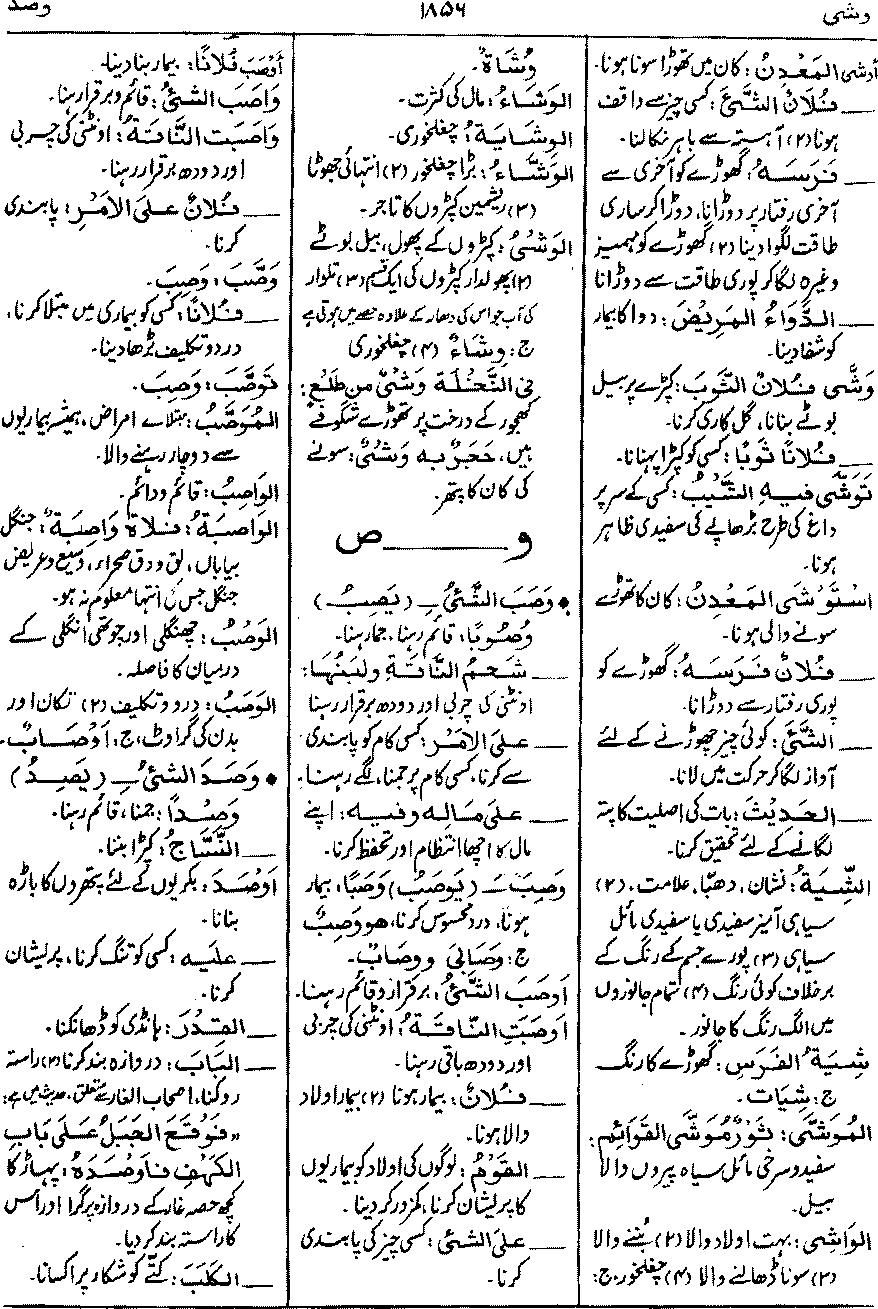 وشی
۱۸۵۶
وصد
أوشى المَعْدِنُ: کان میں تھوڑا سونا ہونا۔
ــــ فُلَانٌ الشَّيْءَ: کسی چیز سے واقف
ہونا (۲) آہستہ سے باہر نکالنا۔
ــــ فَرَسَهُ: گھوڑے کو آخری سے
آخری رفتار پر دوڑانا، دوڑا کر ساری
طاقت لگوا دینا (۲) گھوڑے کو مہمیز
وغیرہ لگا کر پوری طاقت سے دوڑانا
ــــ الدَّوَاءُ المَرِيْضَ: دوا کا بیمار
کو شفا دینا۔
وَشَّى فُلَانٌ الثَّوْبَ: کپڑے پر بیل
بوٹے بنانا، گل کاری کرنا۔
ــــ فُلَانًا ثَوْبًا: کسی کو کپڑا پہنانا۔
تَوَشَّى فِيهِ الشَّيْبُ: کسی کے سر پر
داغ کی طرح بڑھاپے کی سفیدی ظاہر
ہونا۔
اسْتَوْشَى المَعْدِنُ: کان کا تھوڑے
سونے والی ہونا۔
ــــ فُلَانٌ فَرَسَهُ: گھوڑے کو
پوری رفتار سے دوڑانا۔
ــــ الشَّيْءَ: کوئی چیز چھوڑنے کے لئے
آواز لگا کر حرکت میں لانا۔
ــــ الحَدِيْثَ: بات کی اصلیت کا پتہ
لگانے کے لئے تحقیق کرنا۔
الشِّيَةُ: نشان، دھبّا، علامت، (۲)
سیاہی آمیز سفیدی یا سفیدی مائل
سیاہی (۳) پورے جسم کے رنگ کے
برخلاف کوئی رنگ (۴) تمام جانوروں
میں الگ رنگ کا جانور۔
شِيَةُ الفَرَسِ: گھوڑے کا رنگ
ج: شِيَات۔
المُوَشَّى: ثَوْرٌ مُوَشَّى القَوَائِم:
سفید و سرخی مائل سیاہ پیروں والا
بیل۔
الوَاشِي: بہت اولاد والا (۲) بُننے والا
(۳) سونا ڈھالنے والا (۴) چغلخور، ج:
وُشَاةٌ۔
الوَشَاءُ: مال کی کثرت۔
الوِشَايَةُ: چغلخوری۔
الوَشَّاءُ: بڑا چغلخور (۲) انتہائی جھوٹا
(۳) ریشمین کپڑوں کا تاجر۔
الوَشْيُ: کپڑوں کے پھول، بیل بوٹے
(۲) پھولدار کپڑوں کی ایک قسم (۳) تلوار
کی آب جو اس کی دھار کے علاوہ حصے میں ہوتی ہے
ج: وِشَاءٌ (۴) چغلخوری
فِي النَّخْلَةِ وَشْيٌ مِن طَلْعٍ:
کھجور کے درخت پر تھوڑے شگوفے
ہیں، حَجَرٌ بِهِ وَشْيٌ: سونے
کی کان کا پتھر۔
و ــــــــ ص
• وَصَبَ الشَّيْءُ ــِ (يَصِبُ)
وُصُوبًا: قائم رہنا، جمار ہنا۔
ــــ شَحْمُ النَّاقَةِ وَلَبَنُهَا:
اونٹنی کی چربی اور دودھ برقرار رہنا
ــــ عَلَى الأَمْرِ: کسی کام کو پابندی
سے کرنا، کسی کام پر جمنا، لگے رہنا۔
ــــ عَلَى مَالِهِ وَفِيهِ: اپنے
مال کا اچھا انتظام اور تحفظ کرنا۔
وَصِبَ ــَ (يَوْصَبُ) وَصَبًا، بیمار
ہونا، درد محسوس کرنا، هو وَصِبٌ
ج: وَصَابَى و وِصَابٌ۔
أَوْصَبَ الشَّيْءُ: برقرار و قائم رہنا۔
أَوْصَبَتِ النَّاقَةُ: اونٹنی کی چربی
اور دودھ باقی رہنا۔
ــــ فُلَانٌ: بیمار ہونا (۲) بیمار اولاد
والا ہونا۔
ــــ القَوْمُ: لوگوں کی اولاد کو بیماریوں
کا پریشان کرنا، کمزور کر دینا۔
ــــ عَلَى الشَّيْءِ: کسی چیز کی پابندی
کرنا۔
أَوْصَبَ فُلَانًا: بیمار بنا دینا۔
وَاصَبَ الشَّيْءُ: قائم و برقرار رہنا۔
وَاصَبَتِ النَّاقَةُ: اونٹنی کی چربی
اور دودھ برقرار رہنا۔
ــــ فُلَانٌ عَلَى الأَمْرِ: پابندی
کرنا۔
وَصَّبَ: وَصِبَ۔
ــــ فُلَانًا: کسی کو بیماری میں مبتلا کرنا،
درد و تکلیف بڑھا دینا۔
تَوَصَّبَ: وَصِبَ۔
المُوَصَّبُ: مبتلائے امراض، ہمیشہ بیماریوں
سے دوچار رہنے والا۔
الوَاصِبُ: قائم و دائم۔
الوَاصِبَةُ: فَلَاةٌ وَاصِبَةٌ: جنگل
بیاباں، لق و دق صحراء، وسیع و عریض
جنگل جس کی انتہا معلوم نہ ہو۔
الوَصْبُ: چھنگلی اور چوتھی انگلی کے
درمیان کا فاصلہ۔
الوَصَبُ: درد و تکلیف (۲) تکان اور
بدن کی گراوٹ، ج: أَوْصَابٌ۔
• وَصَدَ الشَّيْءُ ــِ (يَصِدُ)
وَصْدًا: جمنا، قائم رہنا۔
ــــ النَّسَّاجُ: کپڑا بننا۔
أَوْصَدَ: بکریوں کے لئے پتھروں کا باڑہ
بنانا۔
ــــ عَلَيْهِ: کسی کو تنگ کرنا، پریشان
کرنا۔
ــــ القِدْرَ: ہانڈی کو ڈھانکنا۔
ــــ البَابَ: دروازہ بند کرنا (۲) راستہ
روکنا، اصحاب الغار سے متعلق، حدیث میں ہے:
«فَوَقَعَ الجَبَلُ عَلَى بَابِ
الكَهْفِ فَأَوْصَدَهُ: پہاڑ کا
کچھ حصہ غار کے دروازہ پر گرا اور اُس
کا راستہ بند کر دیا۔
ــــ الكَلْبَ: کتّے کو شکار پر اکسانا۔